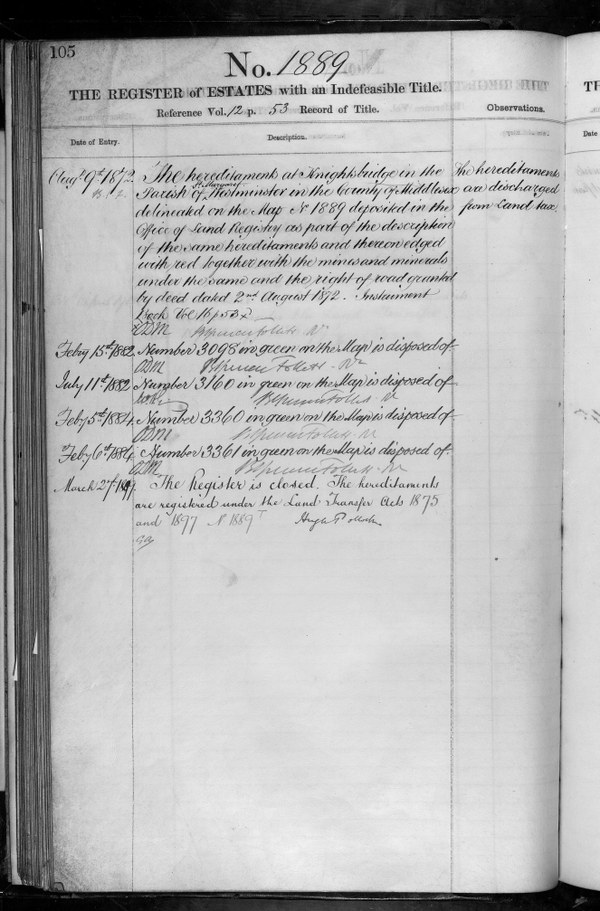 105
No. 1889
THE REGISTER of ESTATES with an Indefeasible Title.
Reference Vol. 12 p. 53 Record of Title.
Observations.
Date of Entry.
Description.
Augt. 9th 1872
The hereditaments at Knightsbridge in the
Parish of St. Margaret Westminster in the County of Middlesex
delineated on the Map No 1889 deposited in the
Office of Land Registry as part of the description
of the same hereditaments and thereon edged
with red together with the mines and minerals
under the same and the right of road granted
by deed dated 2nd August 1872. Instrument
Book Vol 16 p 53
The hereditaments
are discharged
from Land tax
Feby 15th 1882
Number 3098 in green on the Map is disposed of
July 11th 1882
Number 3160 in green on the Map is disposed of
Feby 5th 1884
Number 3360 in green on the Map is disposed of
Feby 6th 1884
Number 3361 in green on the Map is disposed of
March 27th
The Register is closed. The hereditaments
are registered under the Land Transfer Acts 1875
and 1897 No 1889
TH
Date